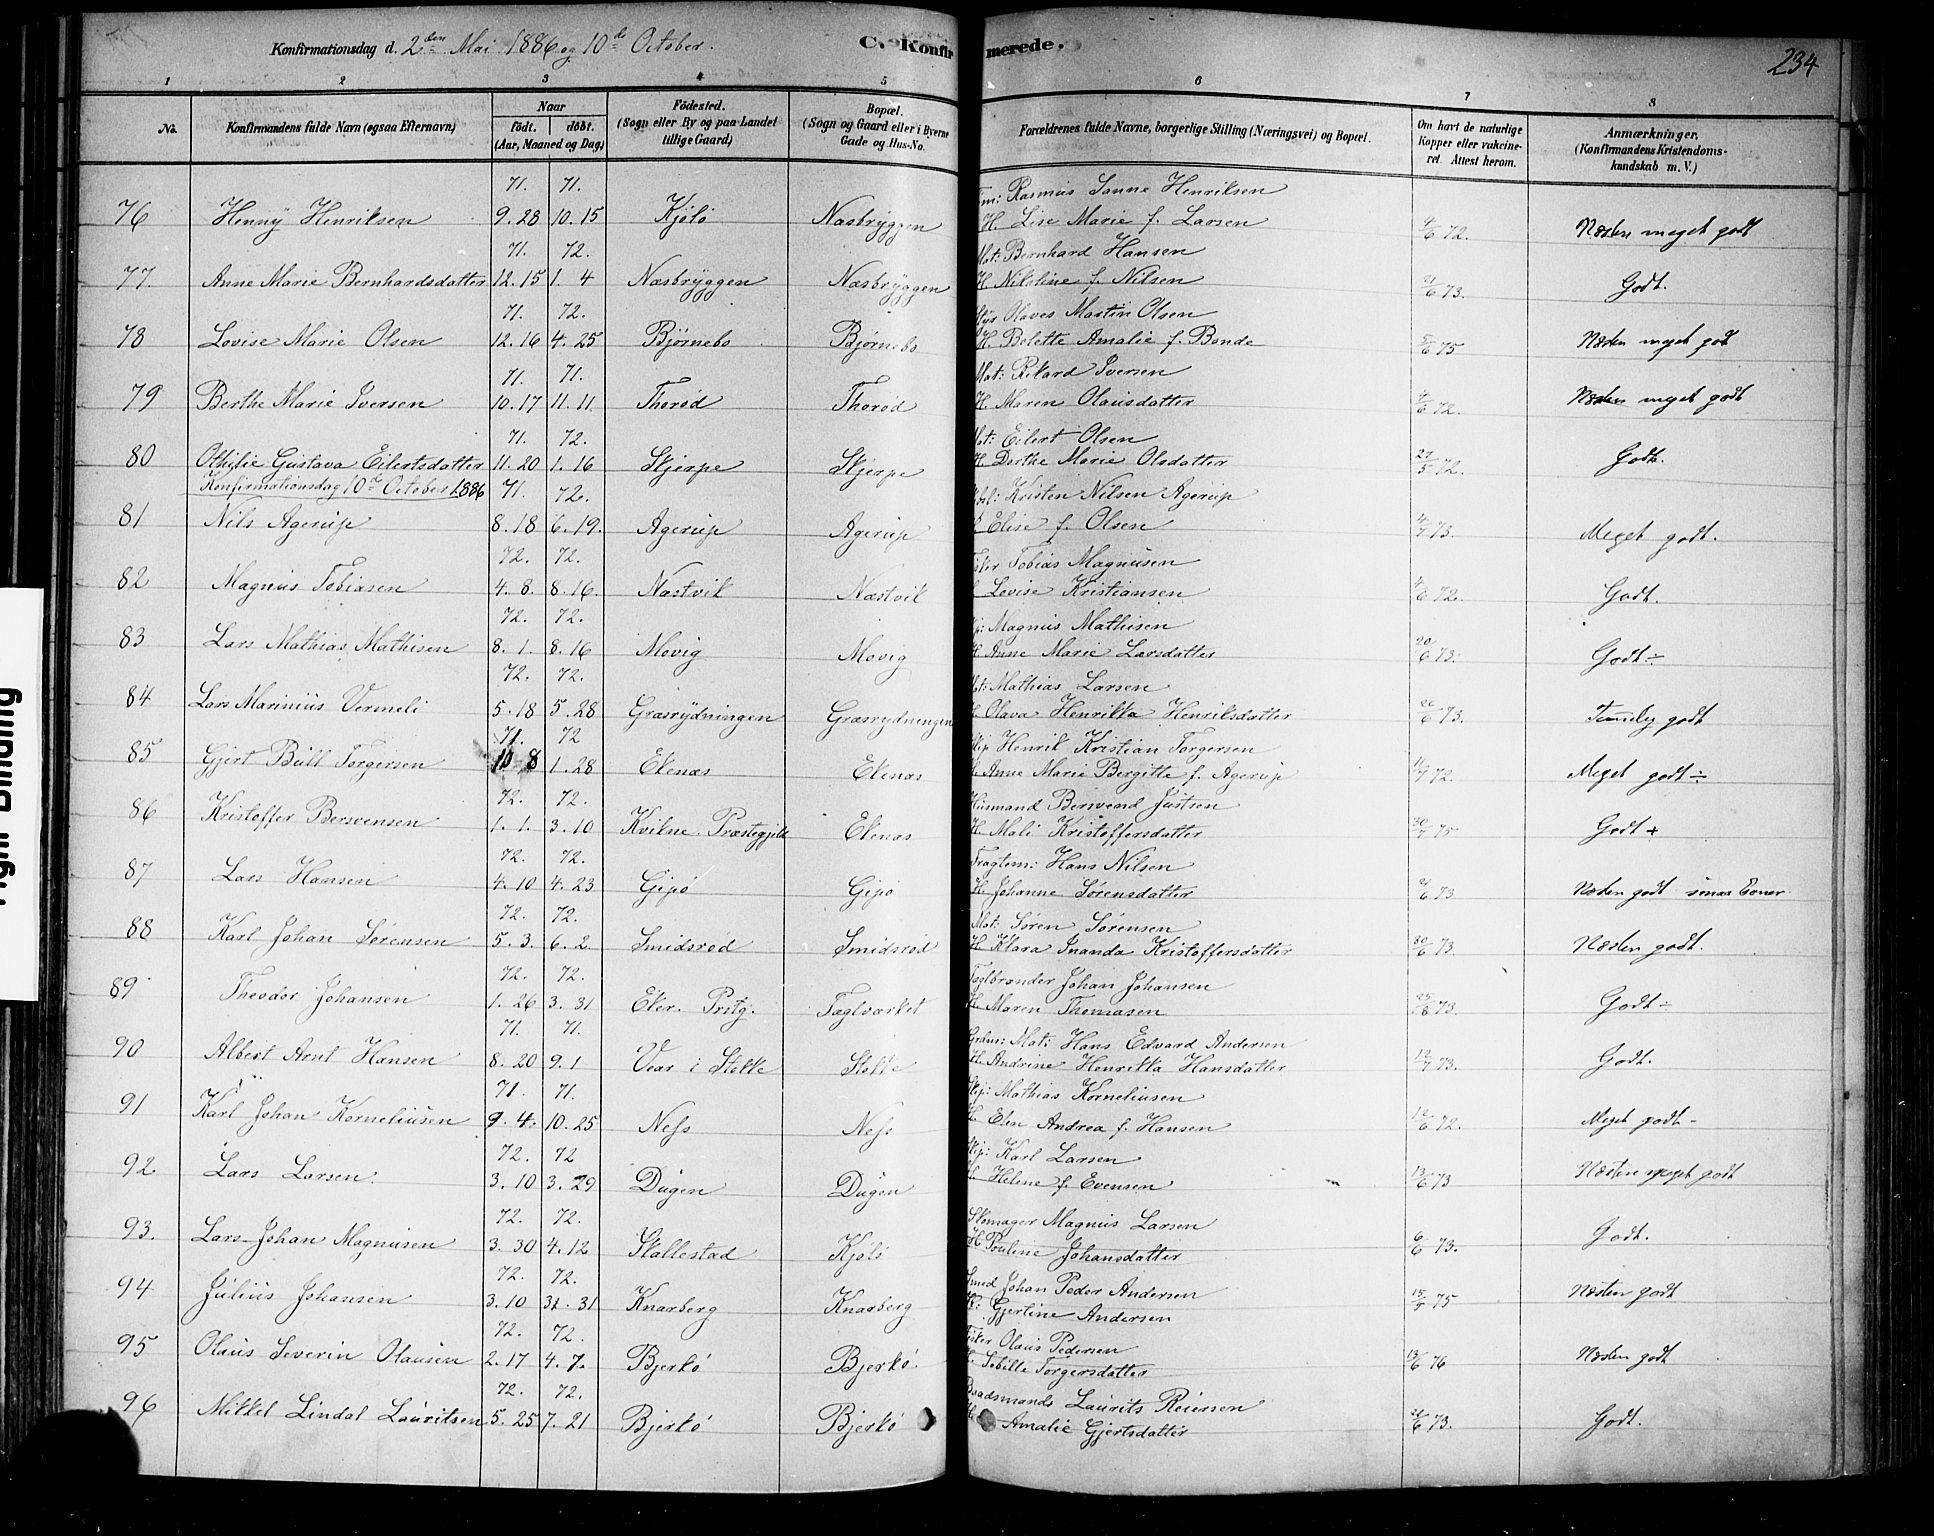 Konfirmationsdag d. 2den Mai 1886 og 10de October.
C. Konfirmerede.
234
1 2 3 4 5 6 7 8
No.
Konfirmandens fulde Navn (ogsaa Efternavn)
Naar
födt. döbt.
(Aar, Maaned og Dag)
Födested.
(Sogn eller By og paa Landet
tillige Gaard)
Bopæl.
(Sogn og Gaard eller i Byerne
Gade og Hus-No.
Forældrenes fulde Navne, borgerlige Stilling (Næringsvei) og Bopæl.
Om havt de naturlige
Kopper eller vakcine-
ret. Attest herom.
Anmærkninger.
(Konfirmandens Kristendoms-
kundskab m. V.)
71. 71. Rasmus Sanne Henriksen
76 Henny Henriksen 9.28 10.15 Kjölö Næsbryggen H. Lise Marie f. Larsen 4/6 72. Næsten meget godt
71. 72. Mat: Bernhard Hansen
77. Anne Marie Bernhardsdatter 12.15 1.4 Næsbryggen Næsbryggen H. Nikoline f. Nilsen 21/6 73. Godt.
71. 72. Olaves Martin Olsen
78 Lovise Marie Olsen 12.16 4.25 Björnebo Björnebo H. Bolette Amalie f. Bonde 5/6 75 Næsten meget godt
71. 71. Mat: Rikard Iversen
79 Berthe Marie Iversen 10.17 11.11 Thoröd Thoröd H. Maren Olausdatter 4/6 72. Næsten meget godt
71. 72. Mat: Eilert Olsen
80 Othilie Gustava Eilertsdatter 11.20 1.16 Skjerpe Skjerpe H. Dorthe Marie Olsdatter 27/5 72. Godt.
Konfirmationsdag 10de October 1886
71. 72. Kristen Nilsen Agerup
81 Nils Agerup 8.18 6.19. Agerup Agerup Elise f. Olsen 4/7 73. Meget godt.
72. 72. Tobias Magnusen
82 Magnus Tobiasen 4.8. 8.16 Næstvik Næstvik Lovise Kristiansen 4/6 72. Godt.
72. 72. Magnus Mathisen
83 Lars Mathias Mathisen 8.1. 8.16 Movig Movig H. Anne Marie Larsdatter 20/6 73. Godt ÷
72. 72. Mat: Mathias Larsen
84 Lars Marinius Vermeli 5.18 5.28 Græsrydningen Græsrydningen Olava Henrikka Henriksdatter 26/6 73. Temmelig godt
71. 72 Skip. Henrik Kristian Torgersen
85 Gjert Bull Torgersen 10 8 1.28 Ekenæs Ekenæs Anne Marie Bergitte f. Agerup 11/7 72. Meget godt ÷
72. 72. Husmand Bersvend Justsen
86 Kristoffer Bersvensen 1.1. 3.10 Kvikne Præstegjeld Ekenæs H. Mali Kristoffersdatter 30/7 75 Godt +
72. 72. Fragtem: Hans Nilsen
87 Lars Hansen 4.10 4.23 Gipö Gipö H. Johanne Sörensdatter 21/6 73 Næsten godt smaa Evner
72. 72. Mat: Sören Sörensen
88 Karl Johan Sörensen 5.3. 6.2. Smidsröd Smidsröd H. Klara Inanda Kristoffersdatter 30/6 73 Næsten godt.
72. 72. Teglbrænder Johan Johansen
89 Theodor Johansen 1.26 3.31 Eker. Prstg. Teglværket H. Maren Thomasen 25/8 73. Godt ÷
71. 71. Mat: Hans Edvard Andersen
90 Albert Arnt Hansen 8.20 9.1 Vear i Stokke Stokke H. Andrine Henrikka Hansdatter 12/7 73. Godt.
71. 71. Skip: Mathias Korneliusen
91 Karl Johan Korneliusen 9.4. 10.25 Ness Ness H. Elen Andrea f. Hansen 12/6 72. Meget godt -
72. 72 Skip: Karl Larsen
92. Lars Larsen. 3.10 3.29 Dugen Dugen H. Helene f. Evensen 13/6 73 Næsten meget godt
72. 72. Skomager Magnus Larsen
93. Lars Johan Magnusen 3.30 4.12 Skallestad Kjölö H. Pouline Johansdatter 6/6 73. Godt.
72. 72. Smed Johan Peder Andersen
94 Julius Johansen 3.10 31.31 Knarberg Knarberg Gjertine Andersen 15/7 75 Næsten godt
72. 72. Fisker Olaus Pedersen
95 Olaus Severin Olausen 2.17 4.7. Bjerkö Bjerkö. Sebille Torgersdatter 13/6 76 Næsten godt
72. 72. Baadsmand Laurits Reiersen
96 Mikkel Lindal Lauritsen 5.25 7.21 Bjerkö Bjerkö Amalie Gjertsdatter 21/6 73. Godt.